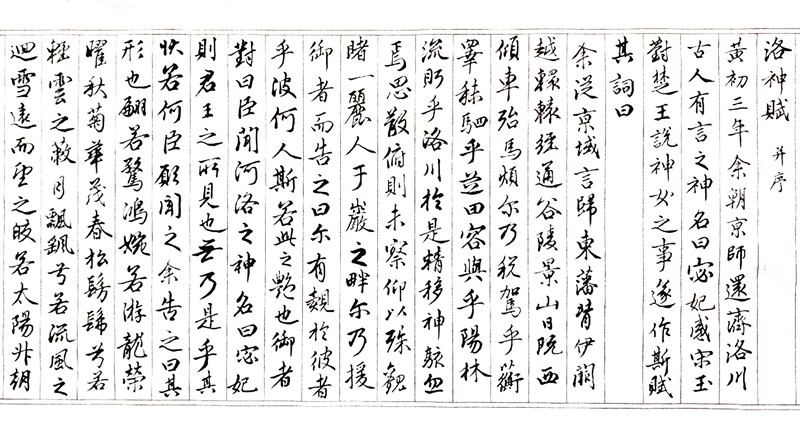 洛神賦 并序
黃初三年余朝京師還濟洛川
古人有言之神名曰宓妃感宋玉
對楚王說神女之事遂作斯賦
其詞曰
余從京域言歸東藩背伊闕
越轘轅經通谷陵景山日既西
傾車殆馬煩尓乃稅駕乎蘅
皋秣駟乎芝田容與乎陽林
流眄乎洛川於是精移神駭忽
焉思散俯則未察仰以殊觀
睹一麗人于巖之畔尓乃援
御者而告之曰尓有覿於彼者
乎波何人斯若此之艷也御者
對曰臣聞河洛之神名曰宓妃
則君王之所見也無乃是乎其
狀若何臣願聞之余告之曰其
形也翩若驚鴻婉若游龍榮
曜秋菊華茂春松髣髴兮若
輕雲之蔽月飄颻兮若流風之
迴雪遠而望之皎若太陽升朝